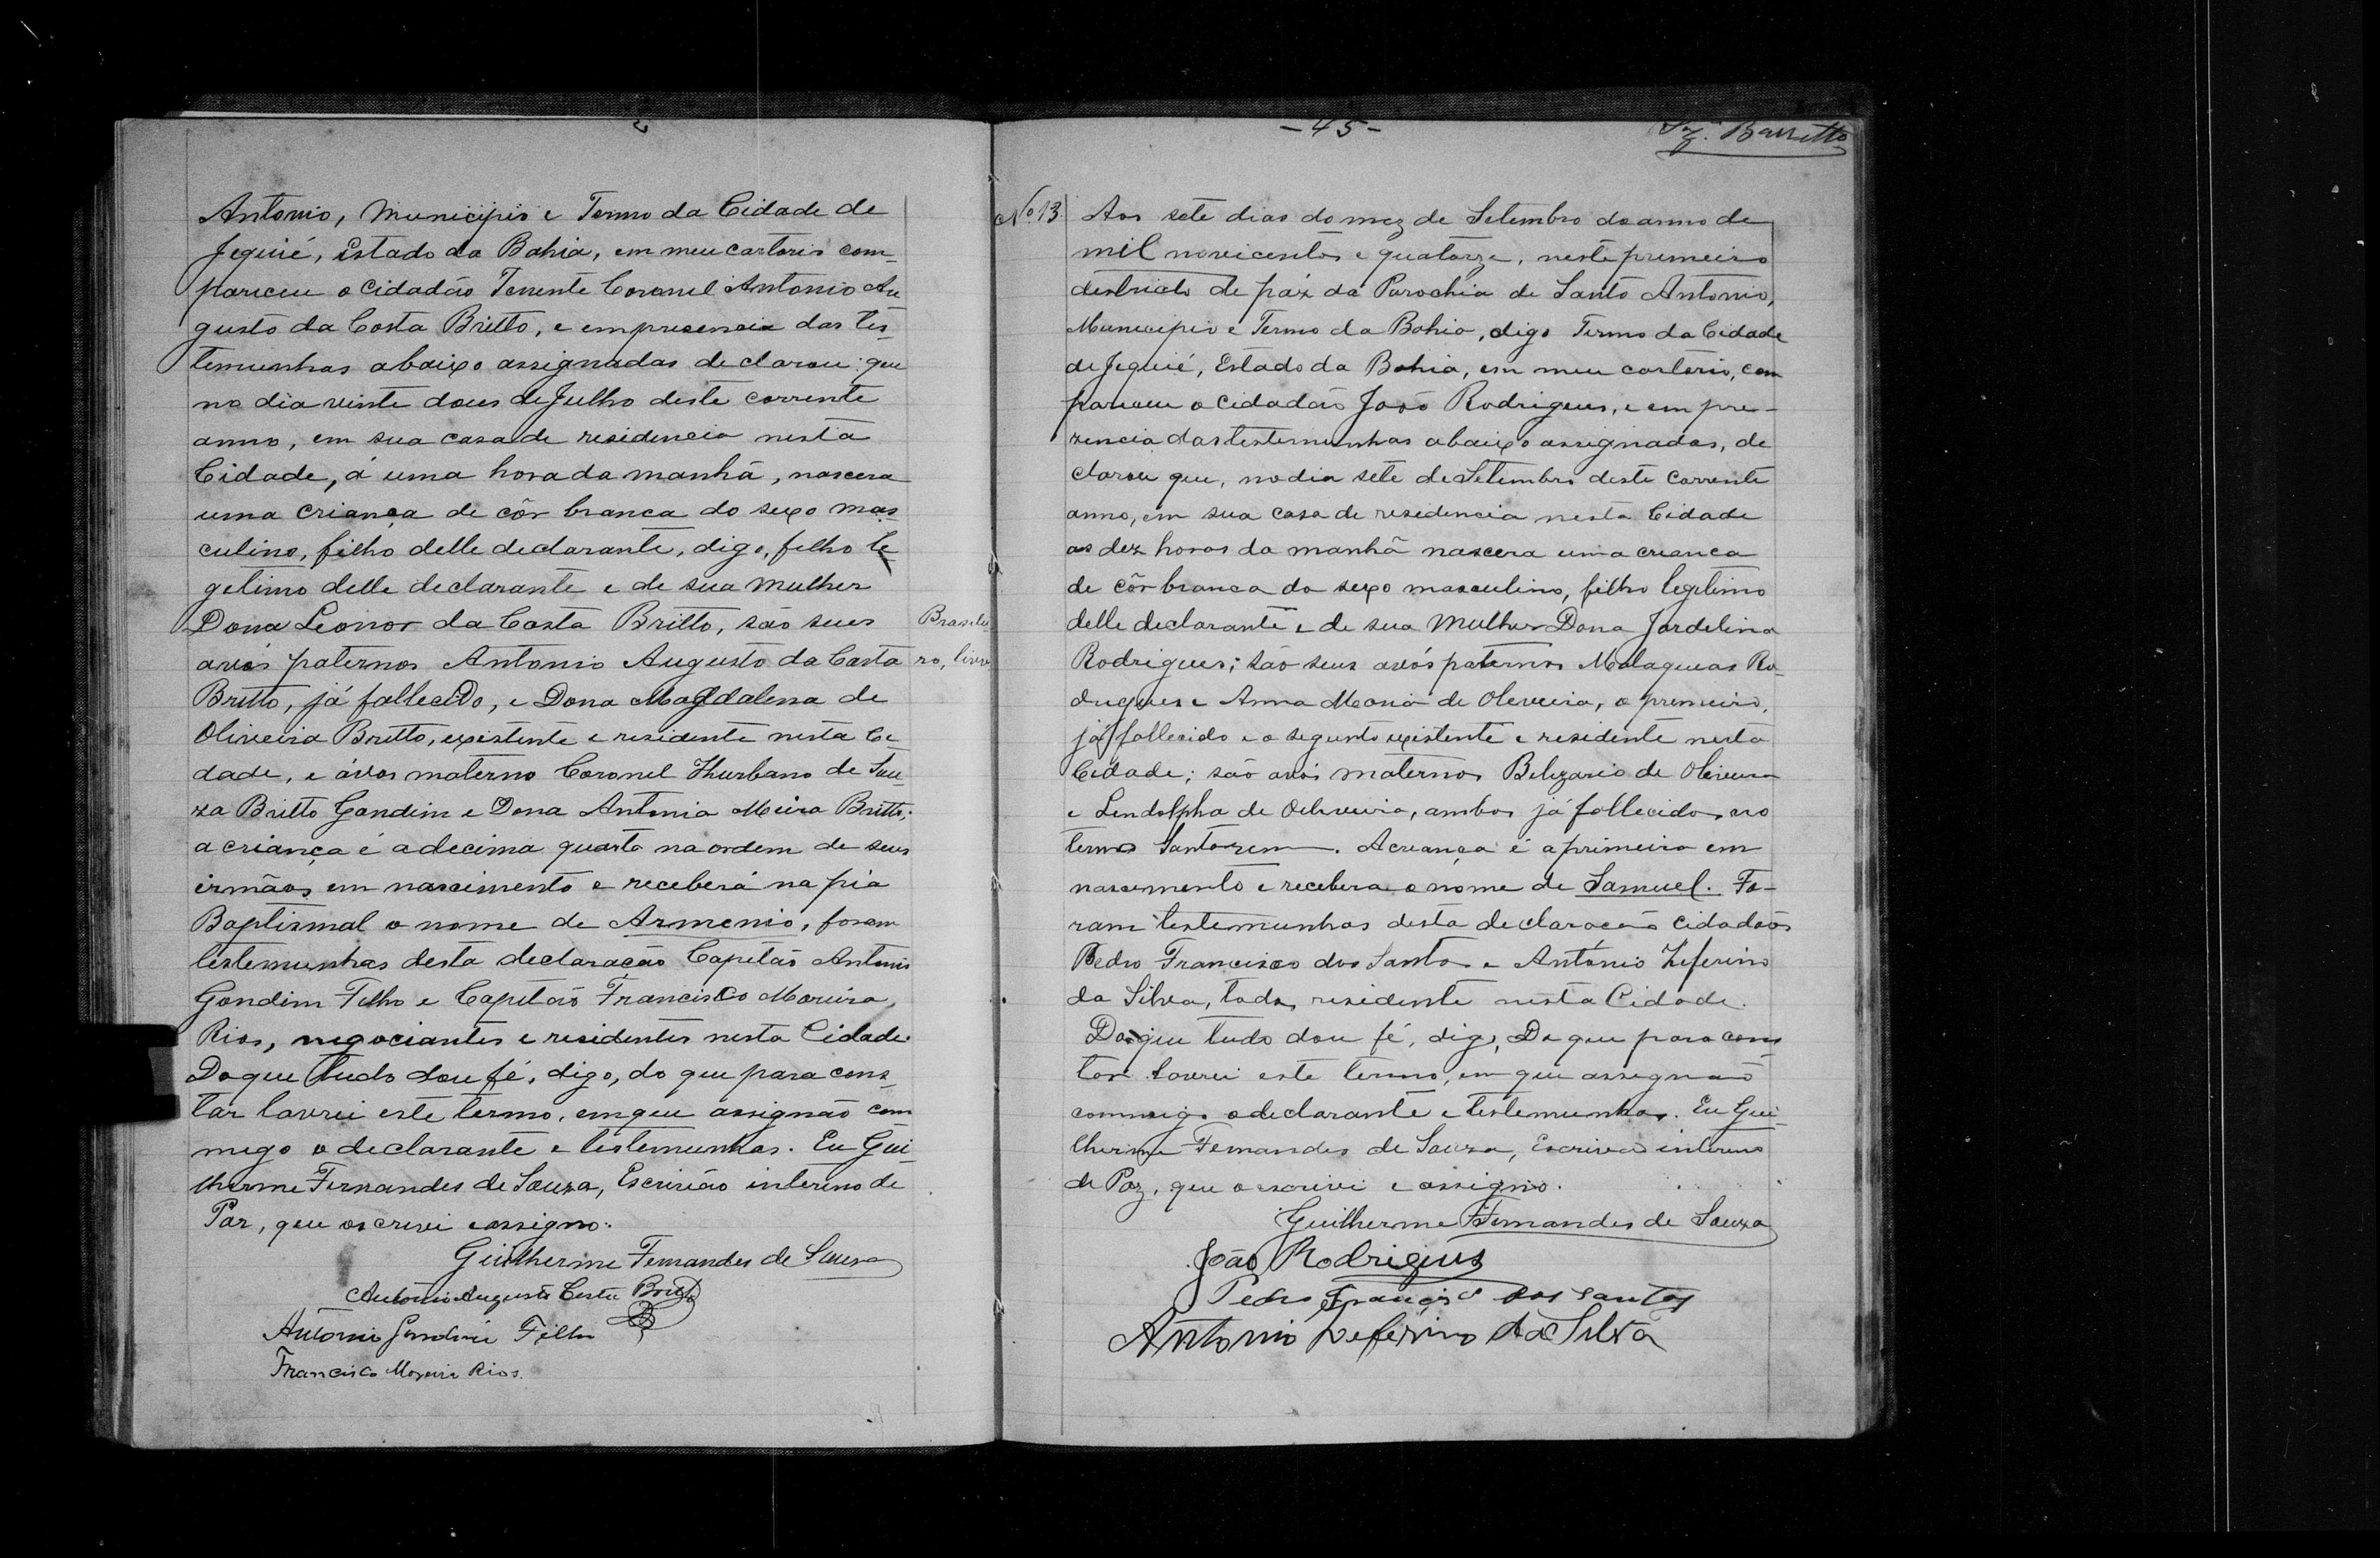 Antonio, Municipio e Termo da Cidade de
Jequié, Estado da Bahia, em meu cartorio com-
pareceu o Cidadão Tenente Coronel Antonio Au
gusto da Costa Britto, e em presencia das tes-
temunhas abaixo assignadas declarou que
no dia vinte dous de Julho deste corrente
anno, em sua casa de residencia nesta
Cidade, á uma hora da manhã, nascera
uma criança de côr branca do sexo mas-
culino, filho delle declarante, digo, filho le-
getimo delle declarante e de sua mulher
Dona Leonor da Costa Britto, são sues
avós paternos Antonio Augusto da Costa
Britto, já fallecido, e Dona Magdalena de
Oliveira Britto, existente e residente nesta Ci-
dade, e ávos materno Coronel Thurbano de Sou-
za Britto Gondim e Dona Antonia Meira Britto;
a criança é a decima quarta na ordem de seus
irmãos em nascimento e receberá na pia
Baptismal o nome de Armenio, foram
testemunhas desta declaração Capitão Antonio
Gondim Filho e Capitão Francisco Moreira
Rios, negociantes e residentes nesta Cidade.
Do que tudo dou fé, digo, do que para cons-
tar lavrei este termo, em que assignão com
migo o declarante e testemunhas. Eu Gui-
lherme Fernandes de Souza, Escrivão interino de
Paz, que o escrevi e assigno.
Guilherme Fernandes de Souza
Antonio Augusto Costa Britto
Antonio Gondim Filho
Francisco Moreira Rios.
Brasilei-
ro, livre
-45-
Barretto
No. 13
Aos sete dias do mez de Setembro do anno de
mil novicentos e quatorze, neste primeiro
destricto de páz da Parochia de Santo Antonio,
Municipio e Termo da Bahia, digo Termo da Cidade
de Jequié, Estado da Bahia, em meu cartorio, com
pareceu o cidadão João Rodrigues, e em pre-
zencia das testemunhas abaixo assignadas, de
clarou que, no dia sete de Setembro deste corrente
anno, em sua casa de residencia nesta Cidade
as dez horas da manhã nascera uma creança
de côr branca do sexo masculino, filho legitimo
delle declarante e de sua Mulher Dona Jardelina
Rodrigues; são seus avós paternos Malaquias Ro-
drigues e Anna Maria de Oliveira, o premeiro,
já fallecido e o segunto existente e residente nesta
Cidade; são avós maternos Belizario de Oliveira
e Lendolpha de Oliveira, ambos já fallecidos no
termo Santarem. A creança é a primeira em
nascemento e recebera o nome de Samuel. Fo-
ram testemunhas desta declaração cidadãos
Pedro Francisco dos Santos e Antonio Zeferino
da Silva, todos residente nesta Cidade.
Do que tudo dou fé, digo, Do que para cons
tar lavrei este termo, em que assegnão
commigo o declarante e testemunhas. Eu Gui-
lherme Fernandes de Souza, Escrivão interino
de Paz, que o escrevi e assigno.
Guilherme Fernandes de Souza
João Rodrigues
Pedro Francisco dos Santos
Antonio Zeferino da Silva